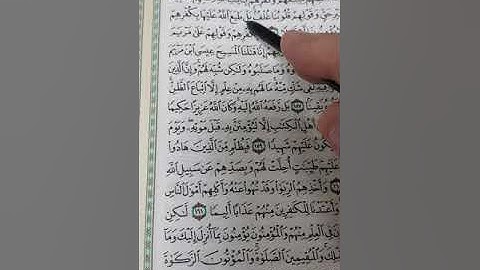 وَقَوْلِهِمْ قُلُوبُنَا غُلْفٌۢ بَلْ طَبَعَ ٱللَّهُ عَلَيْهَا بِكُفْرِهِمْ
وَقَوْلِهِمْ عَلَىٰ مَرْيَمَ
إِنَّا قَتَلْنَا ٱلْمَسِيحَ عِيسَى ٱبْنَ مَرْيَمَ
وَمَا صَلَبُوهُ وَلَٰكِن شُبِّهَ لَهُمْ وَإِنَّ ٱلَّذِينَ
شَكٍّ مِّنْهُ مَا لَهُم بِهِۦ مِنْ عِلْمٍ إِلَّا ٱتِّبَاعَ ٱلظَّنِّ
يَقِينًۢا ١٥٧ بَل رَّفَعَهُ ٱللَّهُ إِلَيْهِ وَكَانَ ٱللَّهُ عَزِيزًا حَكِيمًا
أَهْلِ ٱلْكِتَٰبِ إِلَّا لَيُؤْمِنَنَّ بِهِۦ قَبْلَ مَوْتِهِۦ وَيَوْمَ
يَكُونُ عَلَيْهِمْ شَهِيدًا ١٥٩ فَبِظُلْمٍ مِّنَ ٱلَّذِينَ هَادُوا۟
عَلَيْهِمْ طَيِّبَٰتٍ أُحِلَّتْ لَهُمْ وَبِصَدِّهِمْ عَن سَبِيلِ ٱللَّهِ
وَأَخْذِهِمُ ٱلرِّبَوٰا۟ وَقَدْ نُهُوا۟ عَنْهُ وَأَكْلِهِمْ أَمْوَٰلَ ٱلنَّاسِ
وَأَعْتَدْنَا لِلْكَٰفِرِينَ مِنْهُمْ عَذَابًا أَلِيمًا ١٦١ لَّٰكِنِ
فِى ٱلْعِلْمِ مِنْهُمْ وَٱلْمُؤْمِنُونَ يُؤْمِنُونَ بِمَآ أُنزِلَ إِلَيْكَ وَمَآ
وَٱلْمُقِيمِينَ ٱلصَّلَوٰةَ وَٱلْمُؤْتُونَ ٱلزَّكَوٰةَ